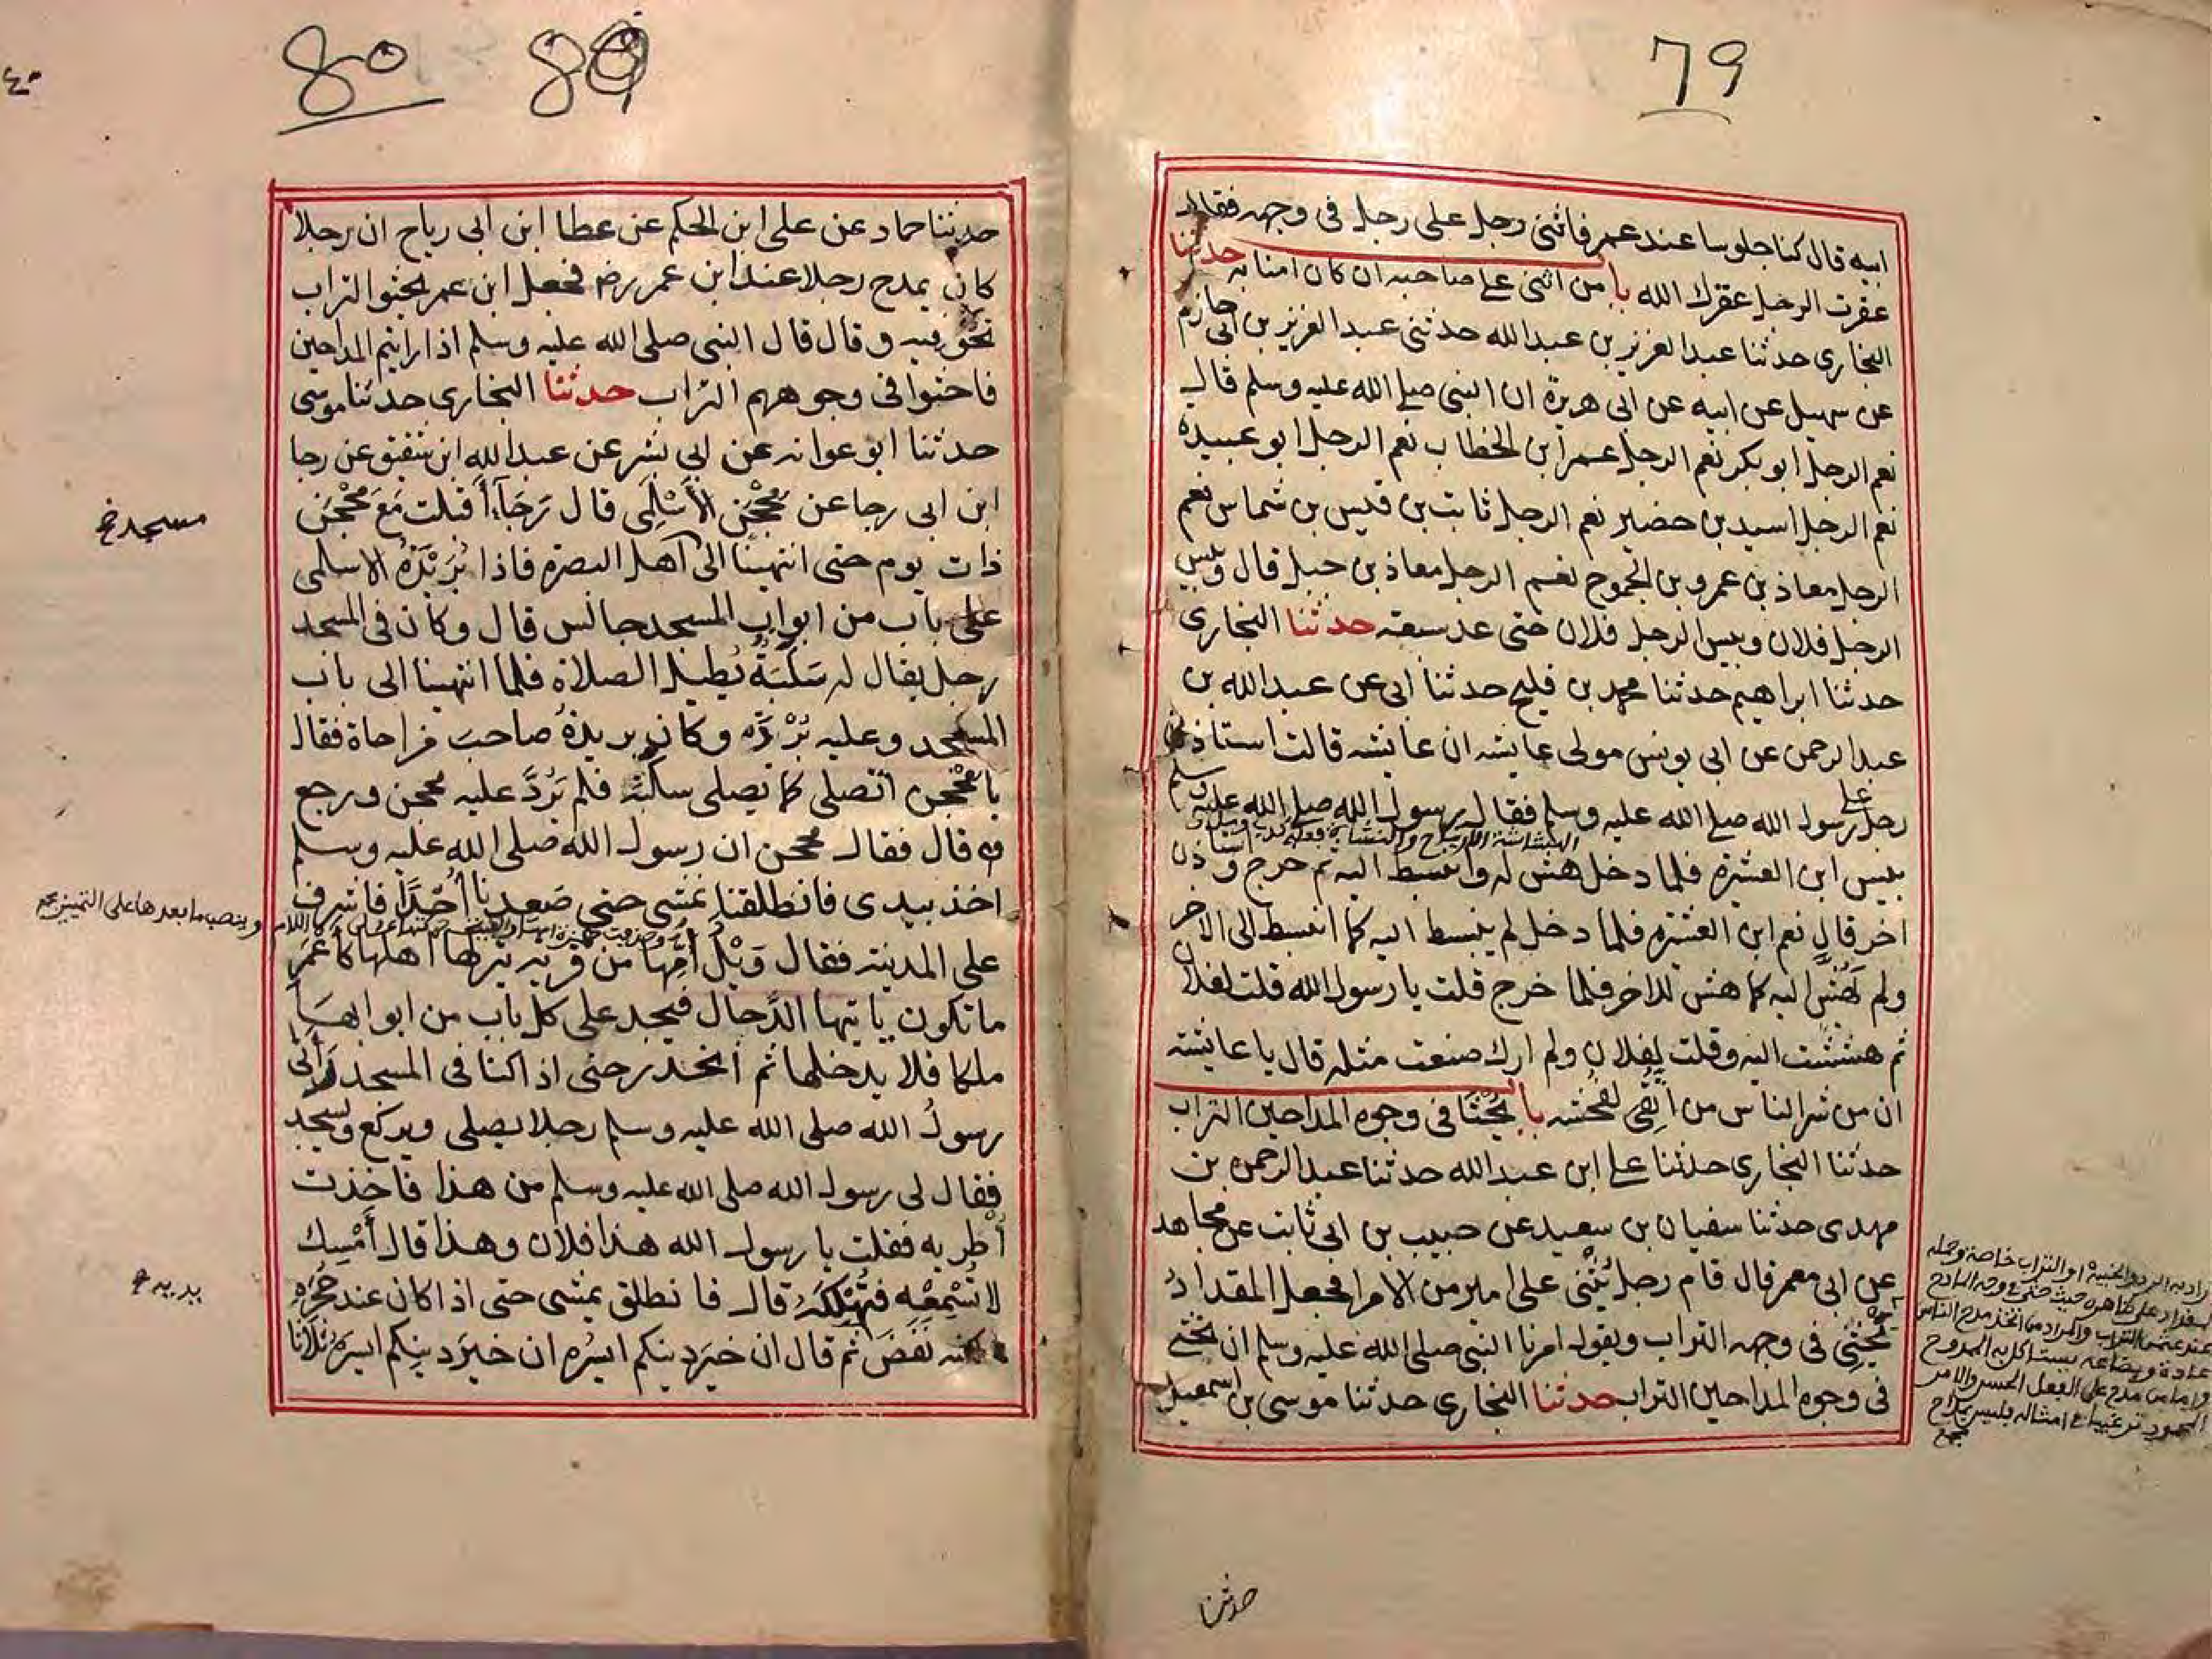 79
ابيه قال كنا جلوسا عند عمر فاثنى رجل على رجل فى وجهه فقال
عقرت الرجل عقرك الله با من اثنى على صاحبه ان كان امنا به حدثنا
البخارى حدثنا عبد العزيز بن عبدالله حدثنى عبد العزيز بن ابى حازم
عن سهيل عن ابيه عن ابى هريرة ان النبى صلى الله عليه وسلم قال
نعم الرجل ابو بكر نعم الرجل عمر ابن الخطاب نعم الرجل ابو عبيدة
نعم الرجل اسيد بن حضير نعم الرجل ثابت بن قيس بن شماس نعم
الرجل معاذ بن عمرو بن الجموح نعم الرجل معاذ بن جبل قال وبيس
الرجل فلان وبيس الرجل فلان حتى عد سبعة حدثنا البخارى
حدثنا ابراهيم حدثنا محمد بن فليح حدثنا ابى عن عبدالله بن
عبد الرحمن عن ابى يونس مولى عايشه ان عائشه قالت استاذن
رجل على رسول الله صلى الله عليه وسلم فقال رسول الله صلى الله عليه وسلم
بيس ابن العشيرة فلما دخل هش له وانبسط اليه ثم خرج واستاذن
اخر قال نعم ابن العشيرة فلما دخل لم ينبسط اليه كما انبسط الى الاخر
ولم يَهُشَّ اليه كما هش للاخر فلما خرج قلت يا رسول الله قلت لفلان
ثم هششت اليه وقلت لفلان ولم ارك صنعت مثله قال يا عايشة
ان من شر الناس من اتُّقِى لفحشه با يُحْثَا فى وجوه المداحين التراب
حدثنا البخارى حدثنا على ابن عبدالله حدثنا عبد الرحمن بن
مهدى حدثنا سفيان بن سعيد عن حبيب بن ابى ثابت عن مجاهد
عن ابى معمر قال قام رجل يُثْنى على امير من الامرا فجعل المقداد
يَحْثِى فى وجهه التراب ويقول امرنا النبى صلى الله عليه وسلم ان نحثى
فى وجوه المداحين التراب حدثنا البخارى حدثنا موسى بن اسمعيل
حدثنا
80 80
٤٠
حدثنا حماد عن على ابن الحكم عن عطا ابن ابى رباح ان رجلا
كان يمدح رجلا عند ابن عمر رض فجعل ابن عمر يحثو التراب
نحو فيه وقال قال النبى صلى الله عليه وسلم اذا رايتم المداحين
فاحثوا فى وجوههم التراب حدثنا البخارى حدثنا موسى
حدثنا ابو عوانه عن ابى بشر عن عبدالله ابن شقيق عن رجا
ابن ابى رجا عن مِحْجَن الأَسْلَمِى قال رَجَآءُ أَقبلت مَعَ مِحْجَن
ذات يوم حتى انتهينا الى اهل البصرة فاذا بُرَيْدَةُ الاسلمى
على باب من ابواب المسجد جالس قال وكان فى المسجد
رجل يقال له سَكْبَةُ يُطيل الصلاة فلما انتهينا الى باب
المسجد وعليه بُرْدَه وكان بريدةُ صاحبَ مزاحاة فقال
يا مِحْجن اتصلى كما يصلى سكبة فلم يَرُدَّ عليه محجن ورجع
قال فقال محجن ان رسول الله صلى الله عليه وسلم
اخذ بيدى فانطلقنا نمشى حتى صَعِدنا اُحُدًا فاشرف
على المدينه فقال وَيْلُ اُمِّها من قريه يتركها اهلها كَأعْمَرِ
ما تكون ياتيها الدَّجال فيجد على كل باب من ابوابها
ملكا فلا يدخلها ثم انحدر حتى اذا كنا فى المسجد رَأَىٰ
رسولُ الله صلى الله عليه وسلم رجلا يصلى ويركع ويسجد
فقال لى رسول الله صلى الله عليه وسلم من هذا فاخذت
اُطريه فقلت يا رسول الله هذا فلان وهذا قال أَمْسِك
لا تُسْمِعْهِ فَتُهْلِكَهُ قال فانطلق يمشى حتى اذا كان عند حُجَرِهِ
نَفَضَ ثم قال ان خير دينكم ايسَرُه ان خير دينكم ايسره ثلاثا
مسجد خ
وينصب ما بعدها على التمييز